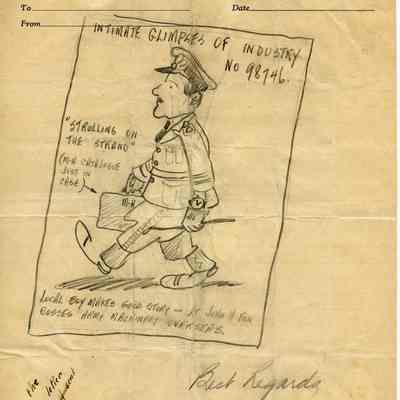 To
Date
From
INTIMATE GLIMPSES OF INDUSTRY
No 98746.
"STROLLING ON
THE STRAND"
(M-H CATALOGUE
JUST IN
CASE)
M-H
LOCAL BOY MAKES GOOD STORY — LT JOHN H FOX
BOSSES ARMY MACHINERY OVERSEAS.
Best Regards
the
letter